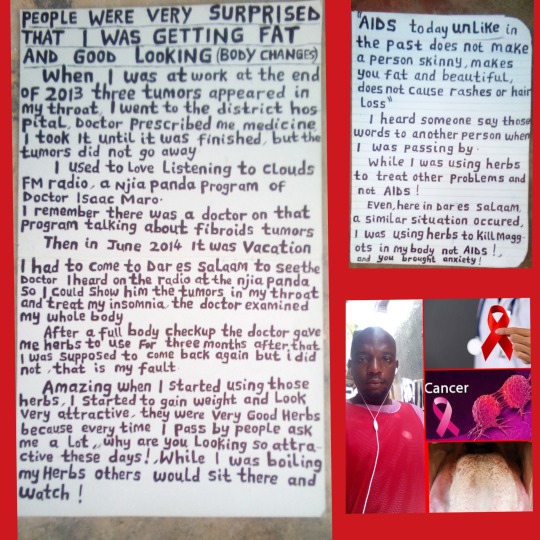 PEOPLE WERE VERY SURPRISED
THAT I WAS GETTING FAT
AND GOOD LOOKING (BODY CHANGES)
When I was at work at the end
OF 2013 three tumors appeared in
my throat, I went to the district hos
pital, Doctor Prescribed me medicine
I took It until it was finished, but the
tumors did not go away
I used to Love Listening to clouds
FM radio, a Njia panda program of
Doctor Isaac Maro.
I remember there was a doctor on that
Program talking about fibroids tumors
Then in June 2014 It was Vacation
I had to come to Dar es Salaam to see the
Doctor I heard on the radio at the njia panda
So I Could Show him the tumors in my throat
and treat my insomnia, the doctor examined
my whole body
After a full body checkup the doctor gave
me herbs to use for three months after, that
I was supposed to come back again but i did
not, that is my fault
Amazing when I started using those
herbs, I started to gain weight and Look
very attractive, they were very Good Herbs
because every time I pass by people ask
me a Lot,, why are you Looking so attra-
ctive these days!, While I was boiling
my Herbs others would sit there and
watch !
"AIDS today unlike in
the past does not make
a person skinny, makes
you fat and beautiful,
does not cause rashes or hair
Loss"
I heard someone say those
words to another person when
I was passing by.
While I was using herbs
to treat other problems and
not AIDS !
Even, here in Dar es Salaam,
a similar situation occured,
I was using herbs to Kill Magg-
ots in my body not AIDS !,
and you brought anxiety!
Cancer